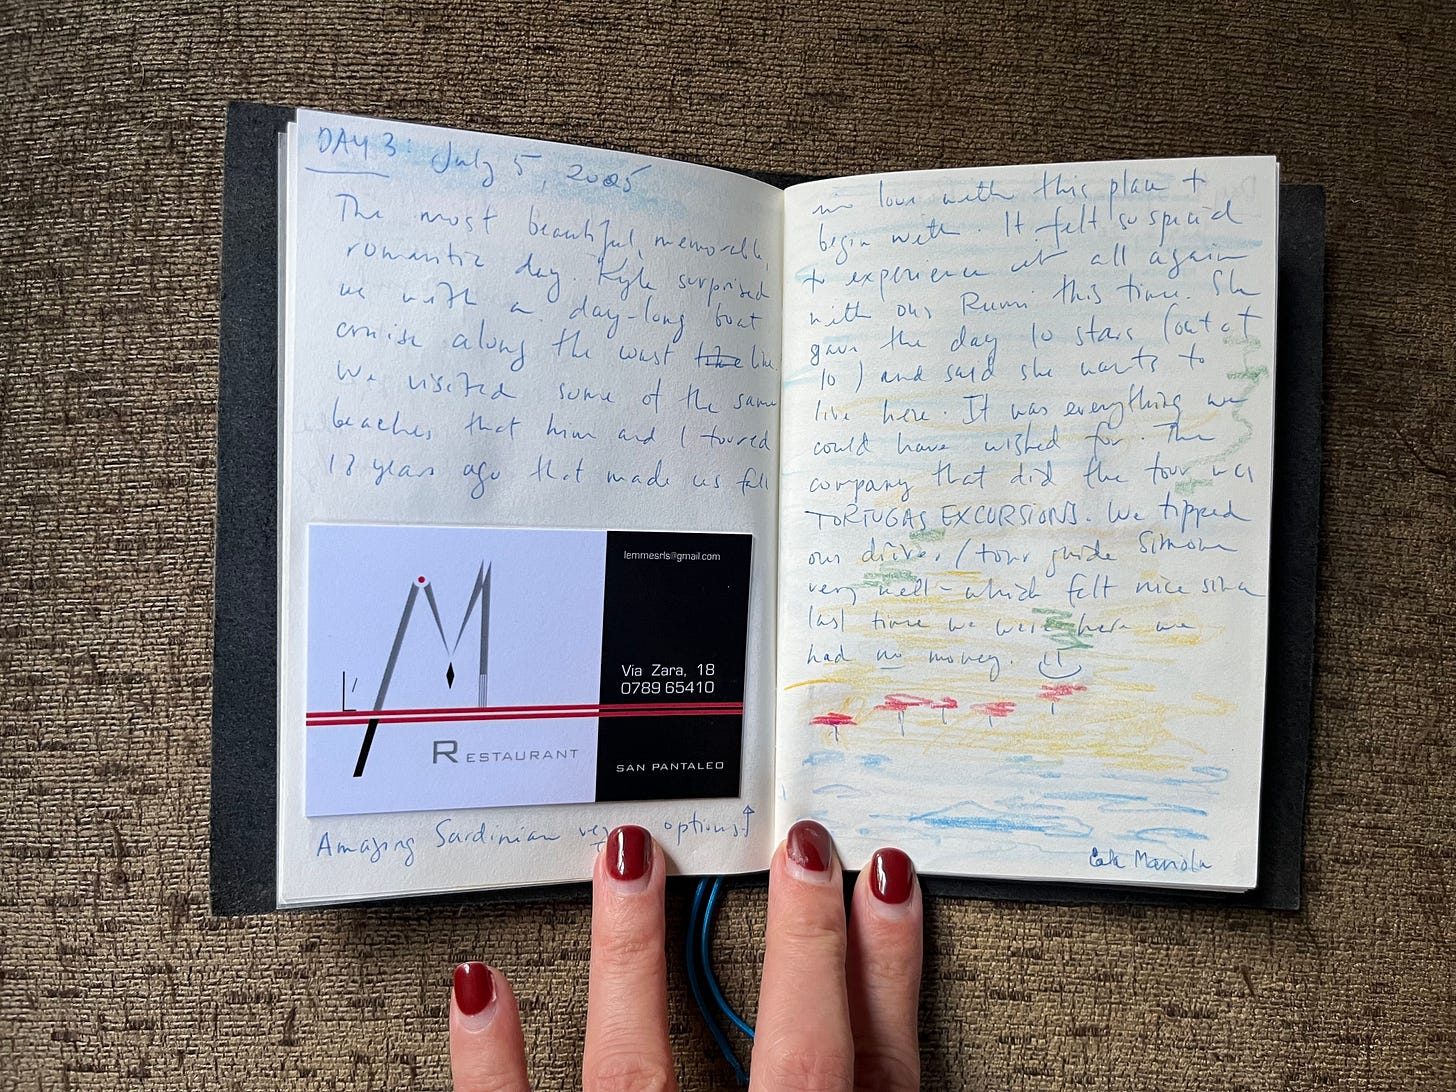 DAY 3: July 5, 2025
The most beautiful, memorable,
romantic day. Kyle surprised
us with a day-long boat
cruise along the coast line line.
We visited some of the same
beaches that him and I toured
18 years ago that made us fall
lemmesrls@gmail.com
Via Zara, 18
0789 65410
L'M
RESTAURANT
SAN PANTALEO
Amazing Sardinian options!
in love with this place to
begin with. It felt so special
to experience it all again
with our Rumi this time. She
gave the day 10 stars (out of
10) and said she wants to
live here. It was everything we
could have wished for. The
company that did the tour was
TORTUGAS EXCURSIONS. We tipped
our driver/tour guide Simone
very well - which felt nice since
last time we were here we
had no money.